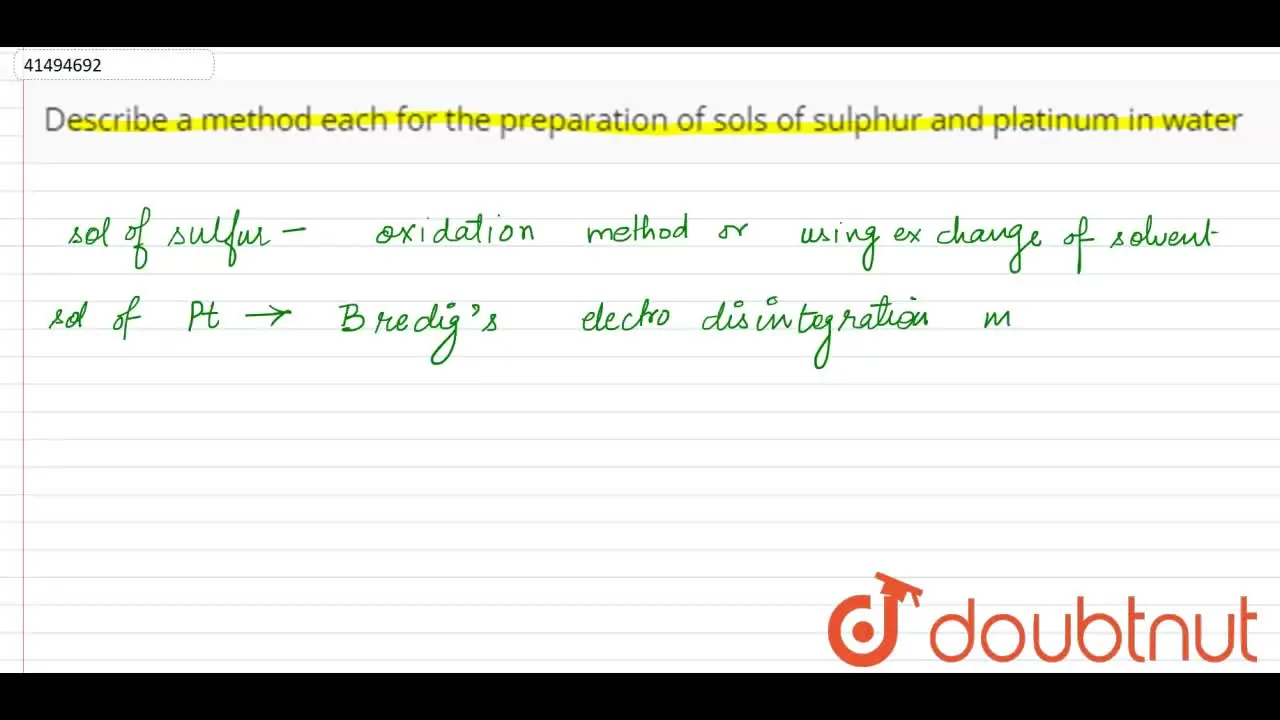 41494692
Describe a method each for the preparation of sols of sulphur and platinum in water
sol of sulfur - oxidation method or using exchange of solvent
sol of Pt → Bredig's electro disintegration m
doubtnut